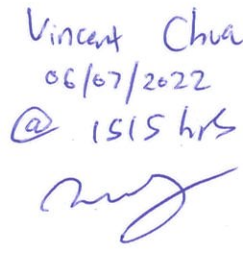 Vincent Chua
06/07/2022
@ 1515 hrs